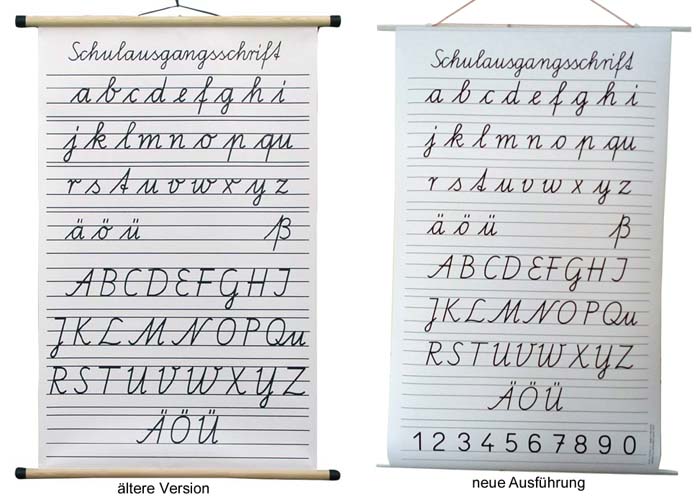 Schulausgangsschrift
a b c d e f g h i
j k l m n o p qu
r s t u v w x y z
ä ö ü ß
A B C D E F G H I
J K L M N O P Qu
R S T U V W X Y Z
Ä Ö Ü
ältere Version
Schulausgangsschrift
a b c d e f g h i
j k l m n o p qu
r s t u v w x y z
ä ö ü ß
A B C D E F G H I
J K L M N O P Qu
R S T U V W X Y Z
Ä Ö Ü
1 2 3 4 5 6 7 8 9 0
neue Ausführung